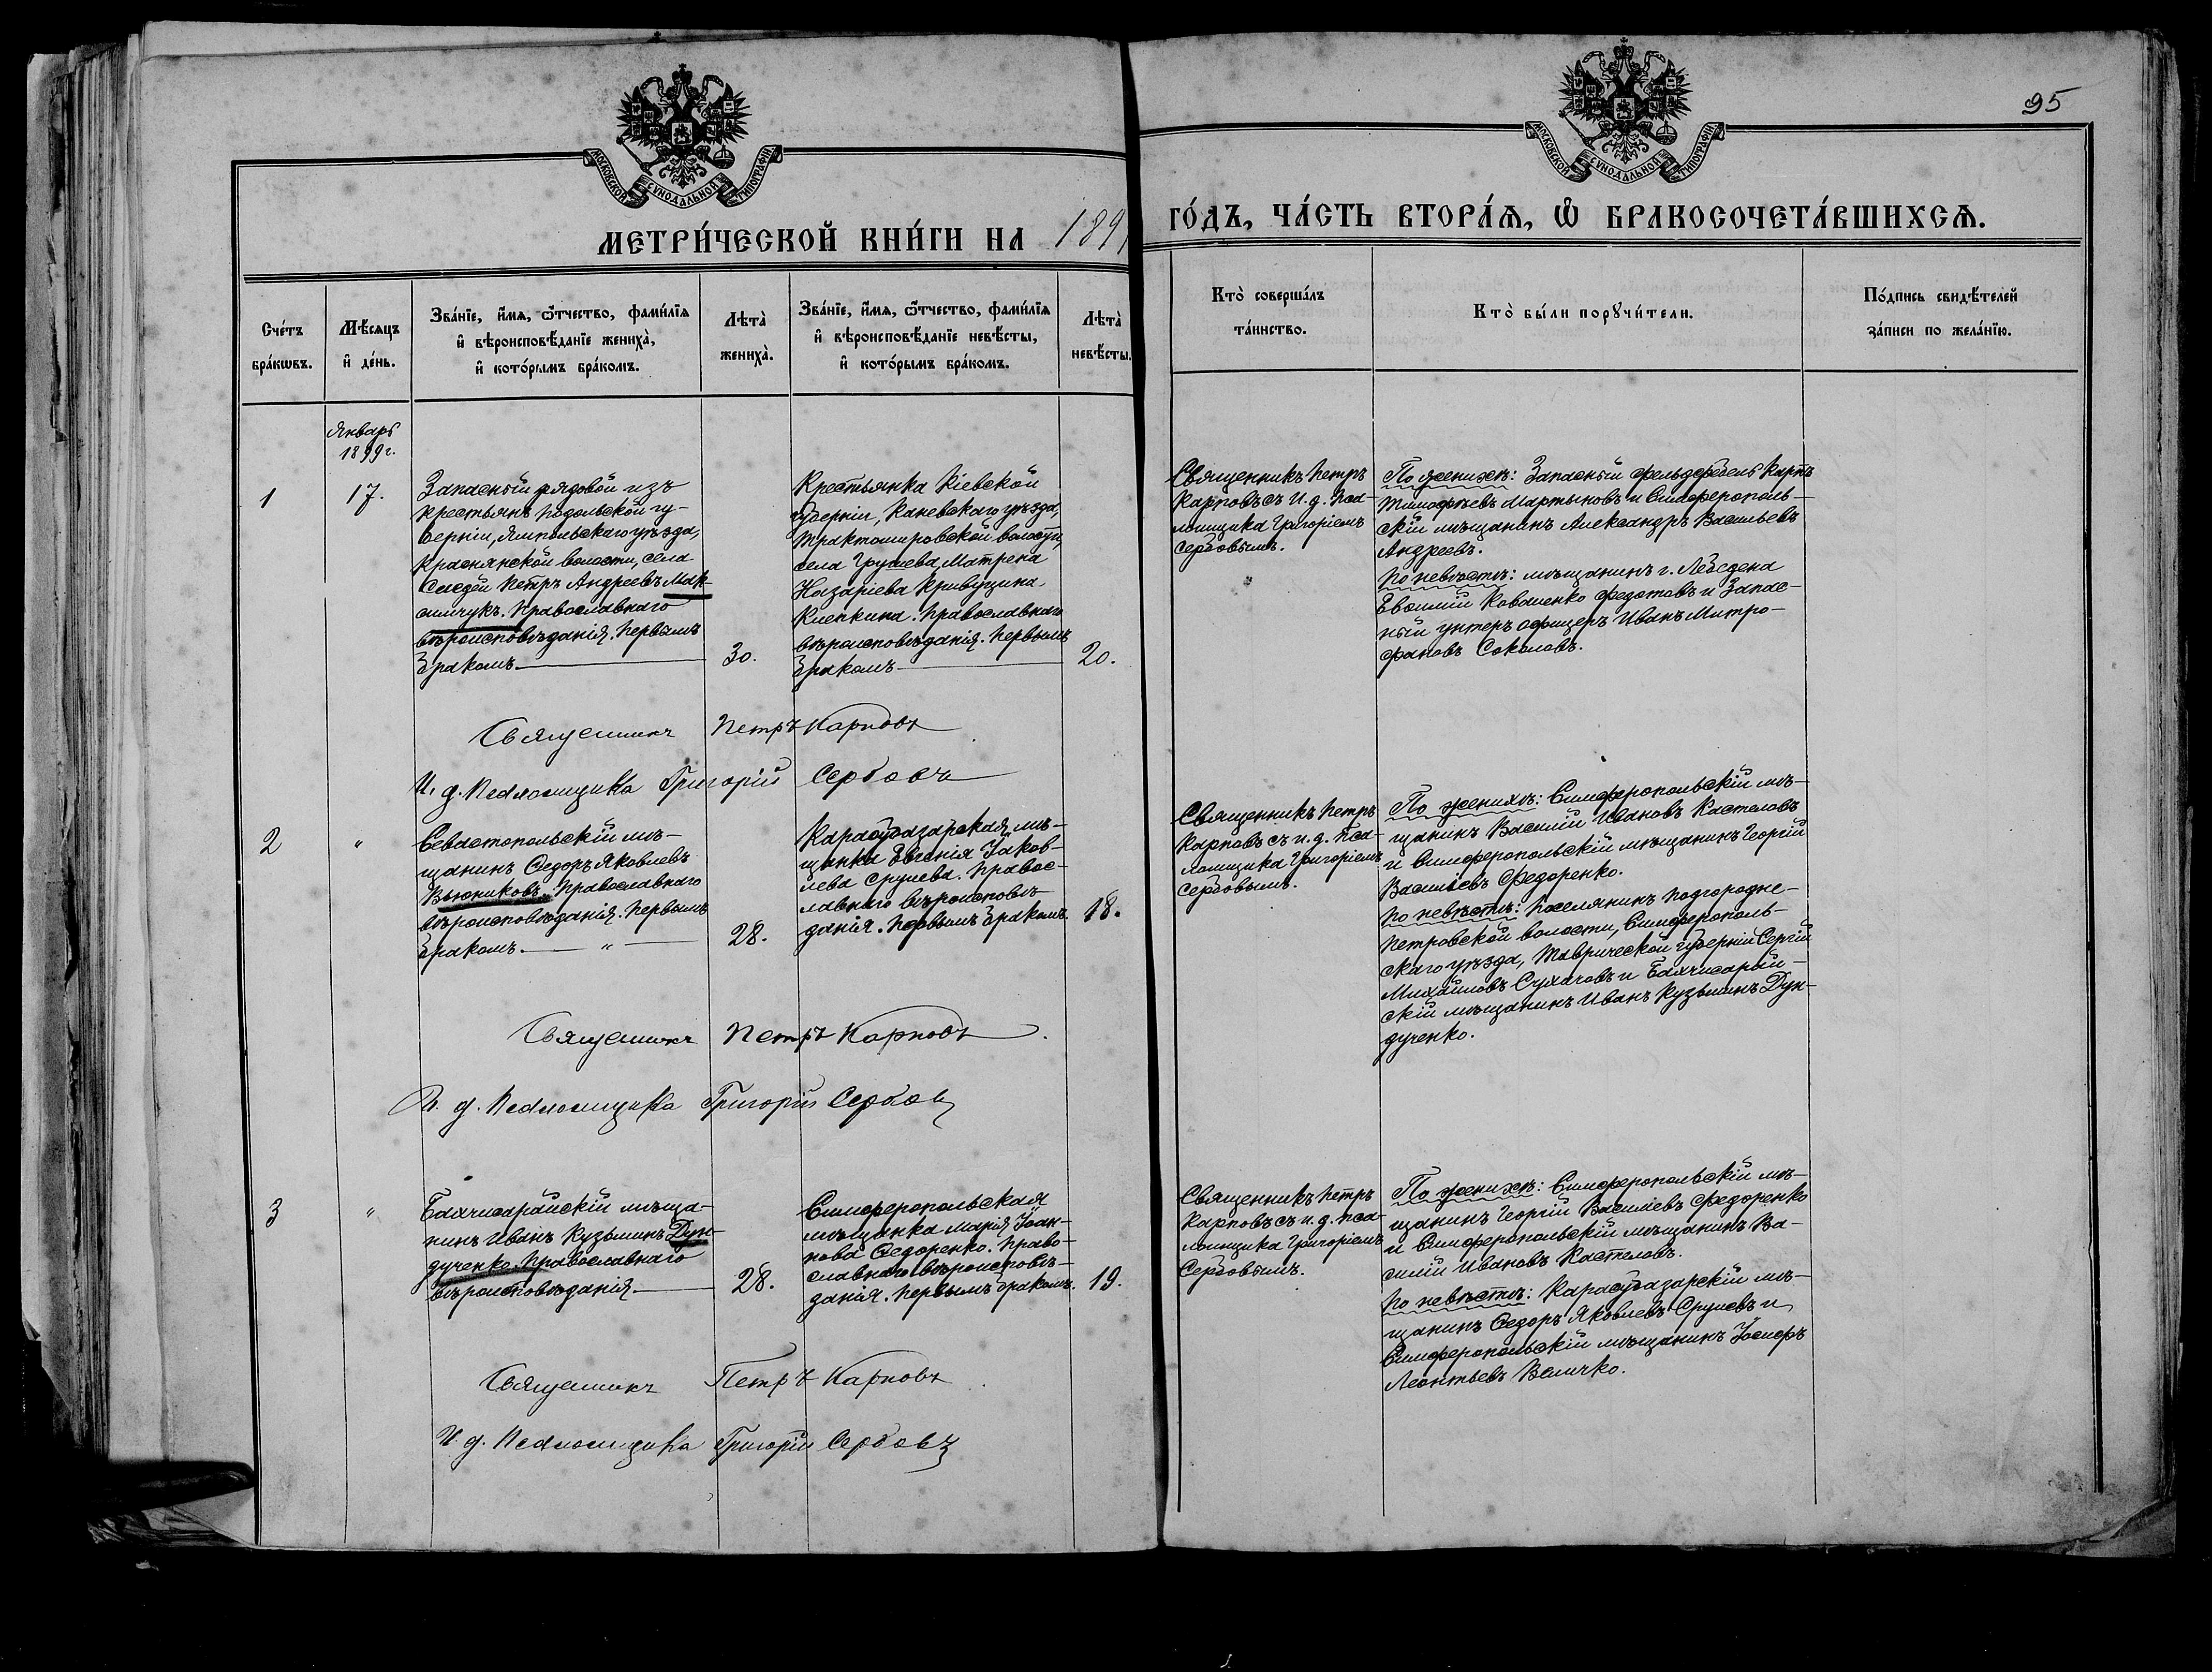 95
МОСКОВСКОЙ СѴНОДАЛЬНОЙ ТИПОГРАФІИ
МОСКОВСКОЙ СѴНОДАЛЬНОЙ ТИПОГРАФІИ
МЕТРИ́ЧЕСКОЙ КНИ́ГИ НА 1899
ГО́ДЪ, ЧА́СТЬ ВТОРА́Я, Ѡ БРАКОСОЧЕТА́ВШИХСѦ.
Сче́тъ
бра́кѡвъ.
Мѣ́сяцъ
и҆ де́нь.
Зва́нїе, и҆́мѧ, ѻ҆́тчество, фами́лїѧ
и҆ вѣроисповѣ́данїе жениха̀,
и҆ кото́рымъ бра́комъ.
Лѣта̀
жениха̀.
Зва́нїе, и҆́мѧ, ѻ҆́тчество, фами́лїѧ
и҆ вѣроисповѣ́данїе невѣ́сты,
и҆ кото́рымъ бра́комъ.
Лѣта̀
невѣ́сты.
Кто̀ соверша́лъ
та́инство.
Кто̀ бы́ли порꙋчи́тели.
По́дпись свидѣ́телей
за́писи по жела́нїю.
Январь
1899 г.
1
17.
Запасный рядовой изъ
крестьянъ Подольской гу-
берніи, Ямпольскаго уѣзда,
Краснянской волости, села
Слободы Петръ Андреевъ Мак-
симчукъ. Православнаго
вѣроисповѣданія. Первымъ
бракомъ.
30.
Крестьянка Кіевской
губерніи, Каневскаго уѣзда,
Трактомировской волости,
села Грушева, Матрена
Назаріева Кривущина,
Православнаго
вѣроисповѣданія. Первымъ
бракомъ
20.
Священникъ Петръ
Карповъ съ и. д. Пса-
ломщика Григоріемъ
Сербовымъ.
По женихѣ: Запасный фельдфебель Карпъ
Тимофѣевъ Мартыновъ и Симферополь-
скій мѣщанинъ Александръ Васильевъ
Андреевъ.
По невѣстѣ: мѣщанинъ г. Лебедена
Евфимій Коваленко Федотовъ и Запас-
ный унтеръ офицеръ Иванъ Митро-
фановъ Соколовъ.
Священникъ Петръ Карповъ
И. д. Псаломщика Григорій Сербовъ
2
"
Севастопольскій мѣ-
щанинъ Ѳедоръ Яковлевъ
Вьюниковъ. Православнаго
вѣроисповѣданія. Первымъ
бракомъ. — " —
28.
Карасубазарская мѣ-
щанка Евгенія Іаков-
лева Срулева. Правос-
лавнаго вѣроисповѣ-
данія. Первымъ бракомъ.
18.
Священникъ Петръ
Карповъ съ и. д. Пса-
ломщика Григоріемъ
Сербовымъ.
По женихѣ: Симферопольскій мѣ-
щанинъ Василій Ивановъ Кастеловъ
и Симферопольскій мѣщанинъ Георгій
Васильевъ Федоренко.
По невѣстѣ: Поселянинъ Подгородне-
Петровской волости, Симферополь-
скаго уѣзда, Таврической губерніи Сергій
Михайловъ Сухачовъ и Бахчисарай-
скій мѣщанинъ Иванъ Кузьминъ Дун-
дученко.
Священникъ Петръ Карповъ
И. д. Псаломщика Григорій Сербовъ
3
"
Бахчисарайскій мѣща-
нинъ Иванъ Кузьминъ Дун-
дученко. Православнаго
вѣроисповѣданія.
28.
Симферопольская
мѣщанка Марія Іоан-
нова Ѳедоренко. Право-
славнаго вѣроисповѣ-
данія. Первымъ бракомъ.
19.
Священникъ Петръ
Карповъ съ и. д. Пса-
ломщика Григоріемъ
Сербовымъ.
По женихѣ: Симферопольскій мѣ-
щанинъ Георгій Василіевъ Федоренко
и Симферопольскій мѣщанинъ Ва-
силій Ивановъ Кастеловъ.
По невѣстѣ: Карасубазарскій мѣ-
щанинъ Ѳедоръ Яковлевъ Срулевъ и
Симферопольскій мѣщанинъ Іосифъ
Леонтьевъ Величко.
Священникъ Петръ Карповъ
И. д. Псаломщика Григорій Сербовъ